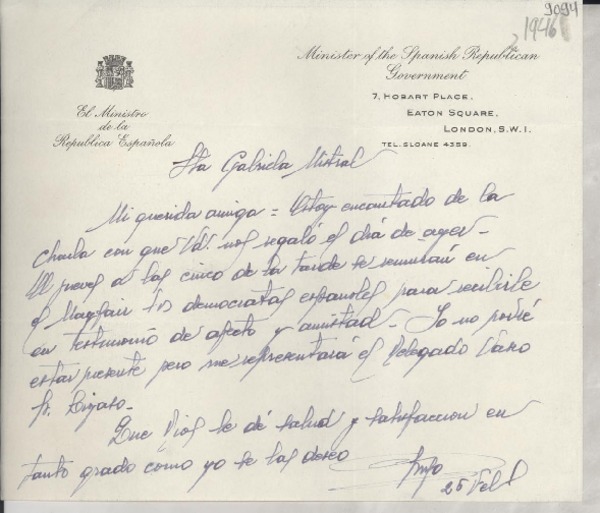 9094
1946
Minister of the Spanish Republican
Government
7, HOBART PLACE,
EATON SQUARE,
LONDON, S.W.I.
TEL. SLOANE 4359.
El Ministro
de la
Republica Española
Sta Gabriela Mistral
Mi querida amiga = Estoy encantado de la
charla con que Vd. nos regaló el día de ayer -
El jueves a las cinco de la tarde se reunirán en
el Mayfair los democratas españoles para recibirle
en testimonio de afecto y amistad - Yo no podré
estar presente pero me representará el Delegado Vasco
Sr. Lizaso.
Que Dios le dé salud y satisfaccion en
tanto grado como yo se las deseo
25 Feb